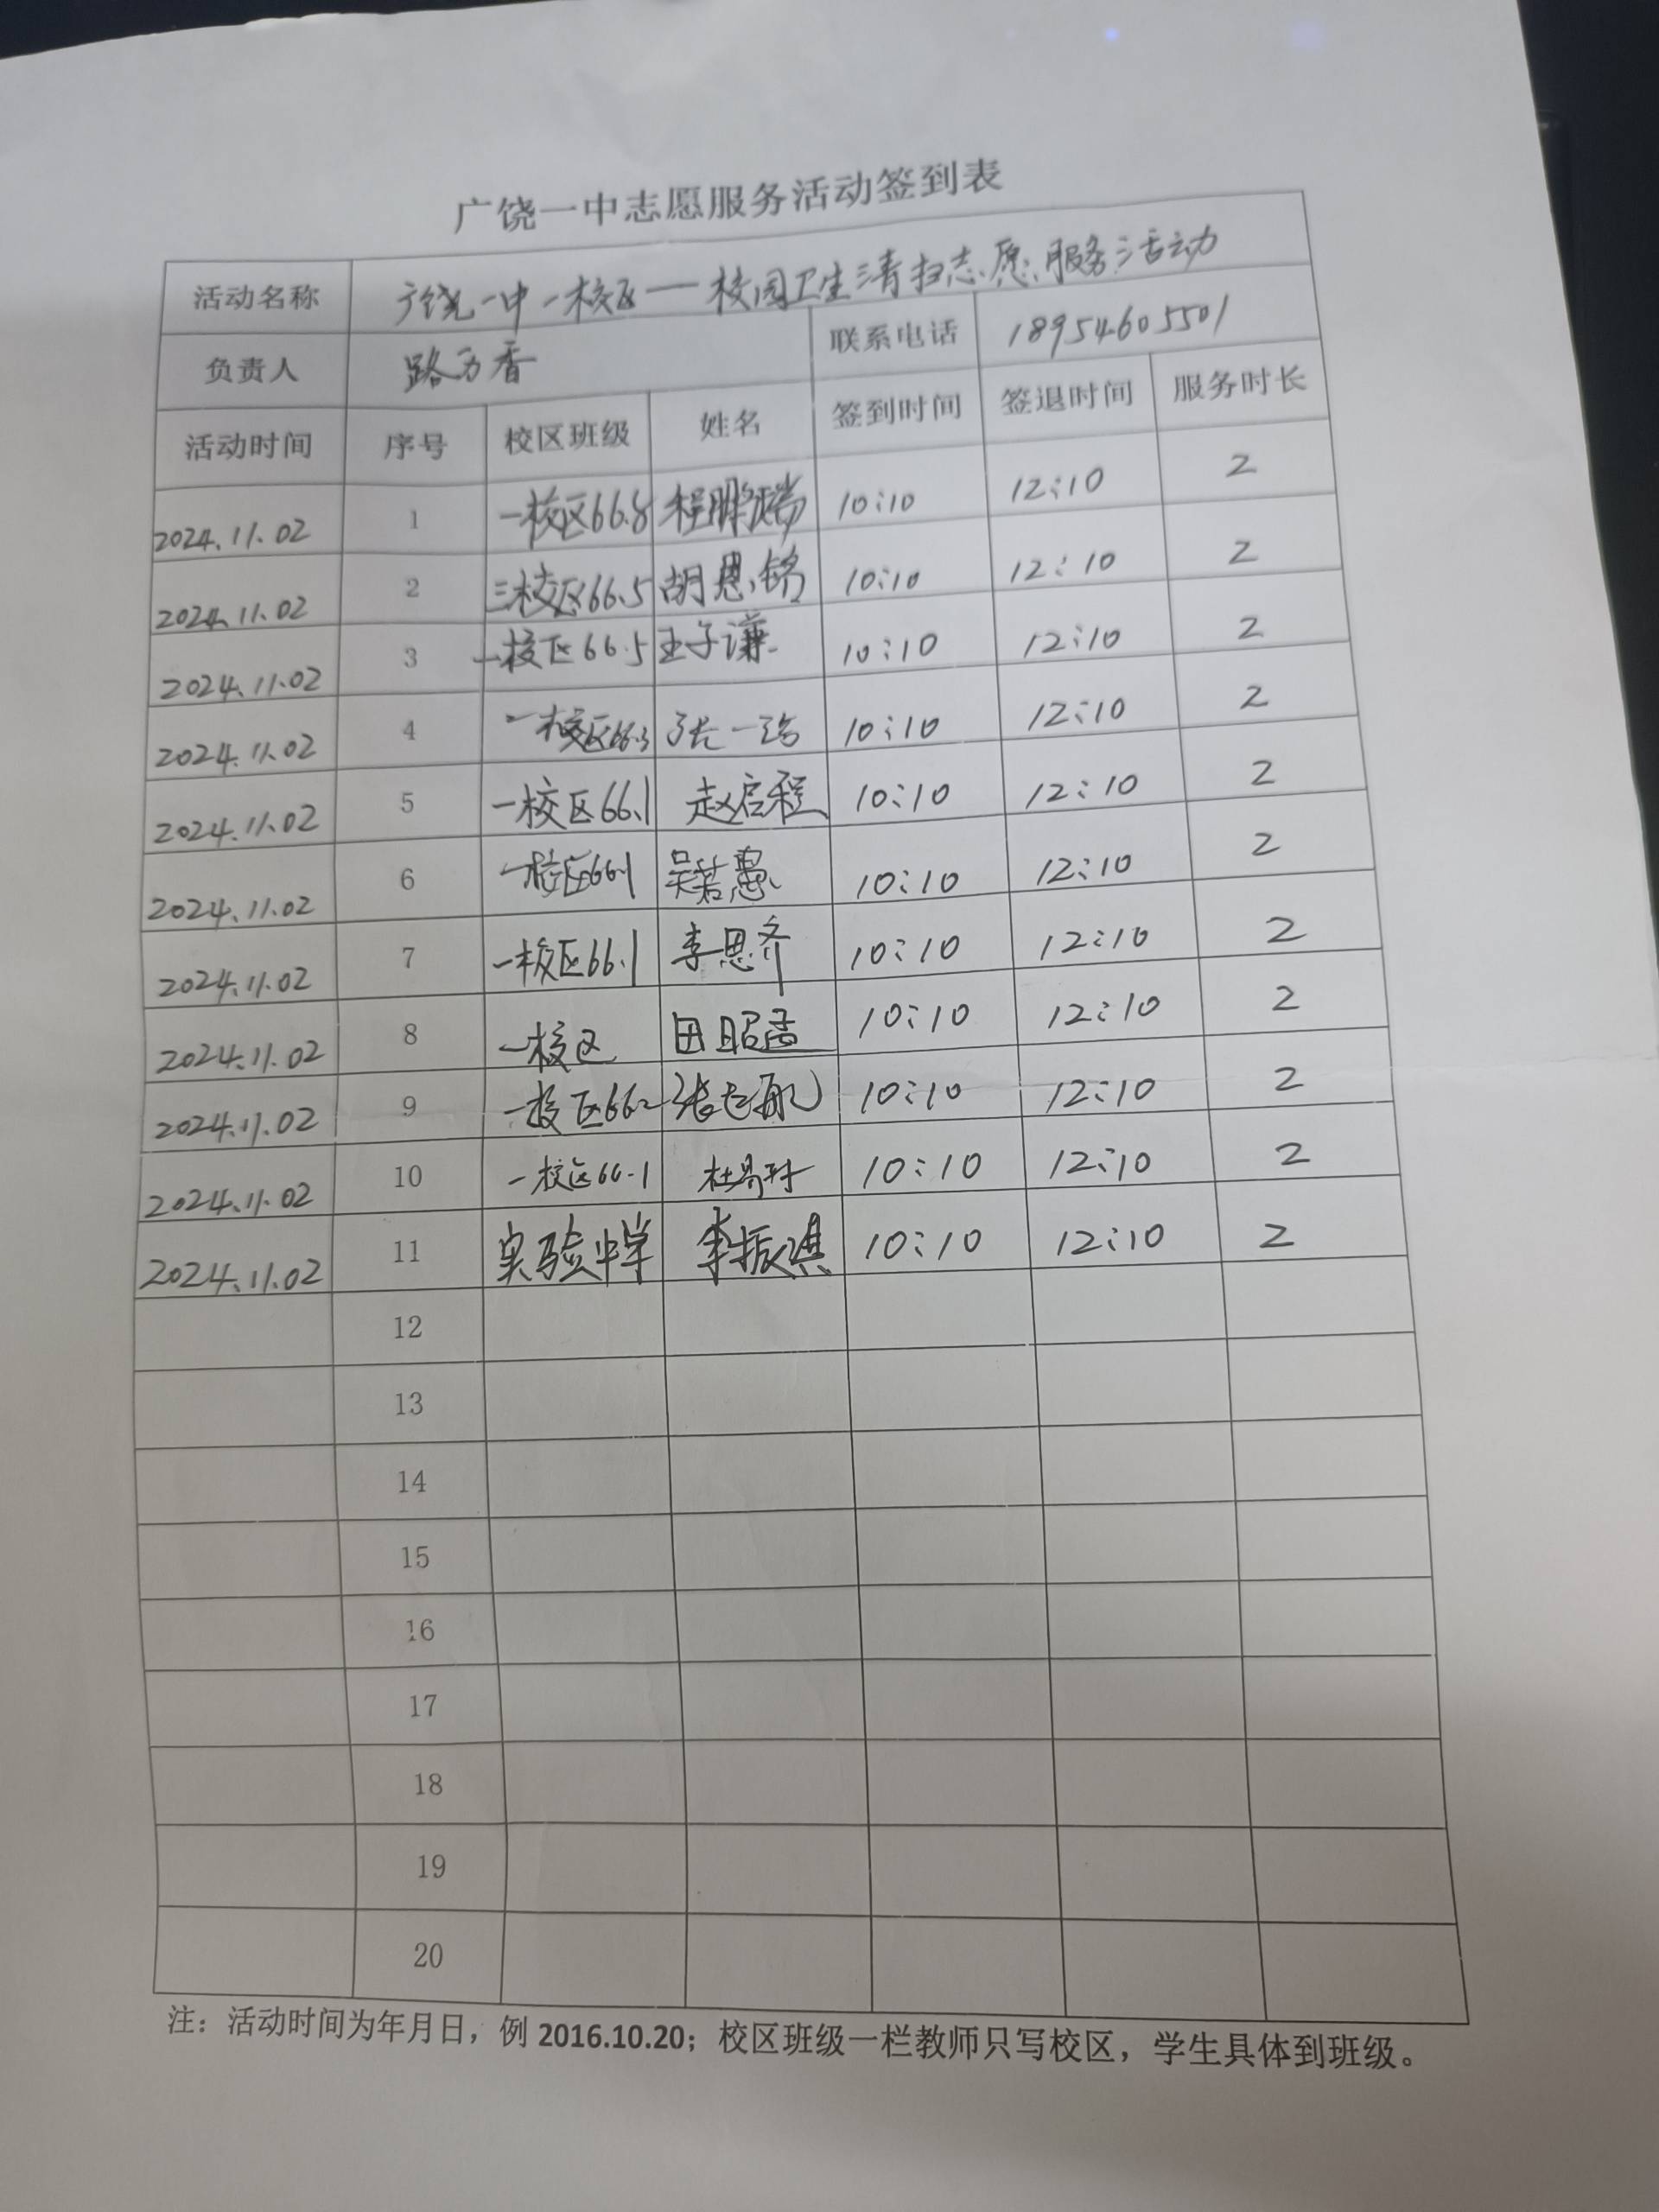 广饶一中志愿服务活动签到表
活动名称 广饶一中一校区一校园卫生清扫志愿服务活动
负责人 路万香 联系电话 18954605501
活动时间 序号 校区班级 姓名 签到时间 签退时间 服务时长
2024.11.02 1 一校区66.8 程鹏瑞 10:10 12:10 2
2024.11.02 2 三校区66.5 胡恩铭 10:10 12:10 2
2024.11.02 3 一校区66.5 王子谦 10:10 12:10 2
2024.11.02 4 一校区66.3 张一 10:10 12:10 2
2024.11.02 5 一校区66.1 赵启程 10:10 12:10 2
2024.11.02 6 一校区66.1 吴若愚 10:10 12:10 2
2024.11.02 7 一校区66.1 李思齐 10:10 12:10 2
2024.11.02 8 一校区 田昭孟 10:10 12:10 2
2024.11.02 9 一校区66.2 张志航 10:10 12:10 2
2024.11.02 10 一校区66.1 杜 10:10 12:10 2
2024.11.02 11 实验中学 李振琪 10:10 12:10 2
12
13
14
15
16
17
18
19
20
注：活动时间为年月日，例 2016.10.20；校区班级一栏教师只写校区，学生具体到班级。